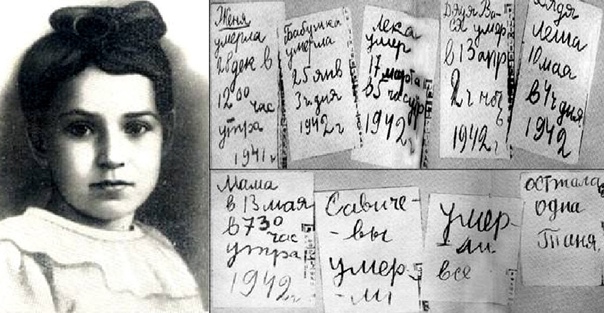 Женя
умерла
28 дек в
12 00 час
утра
1941 г
Бабушка
умерла
25 янв
3 ч дня
1942 г
Лека
умер
17 марта
в 5 час утр
1942 г
Дядя Ва-
ся умер
в 13 апр
2 ч ноч
1942 г
Дядя
Леша
10 мая
в 4 ч дня
1942
Мама
в 13 мая
в 7 30
час
утра
1942 г
Савиче-
-вы
умер-
-ли
умер-
-ли
все
осталась
одна
Таня